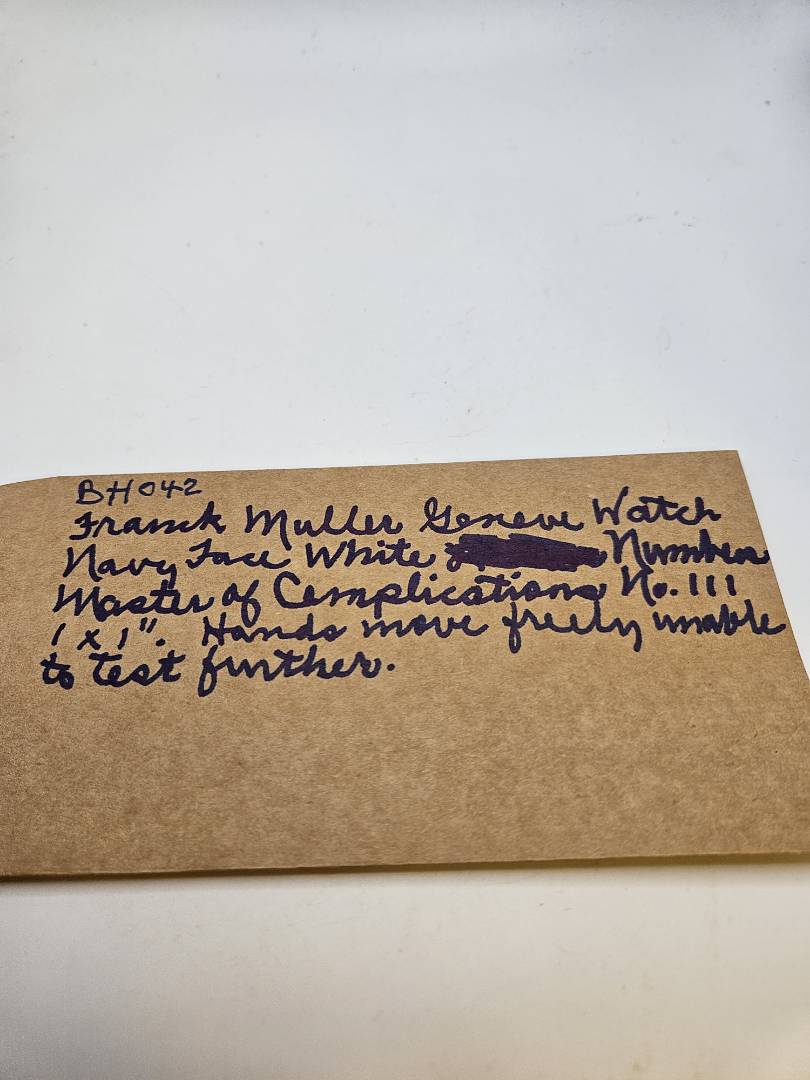 BH042
Franck Muller Geneve Watch
Navy Face White Numbers
Master of Complications No. 111
1 x 1". Hands move freely unable
to test further.